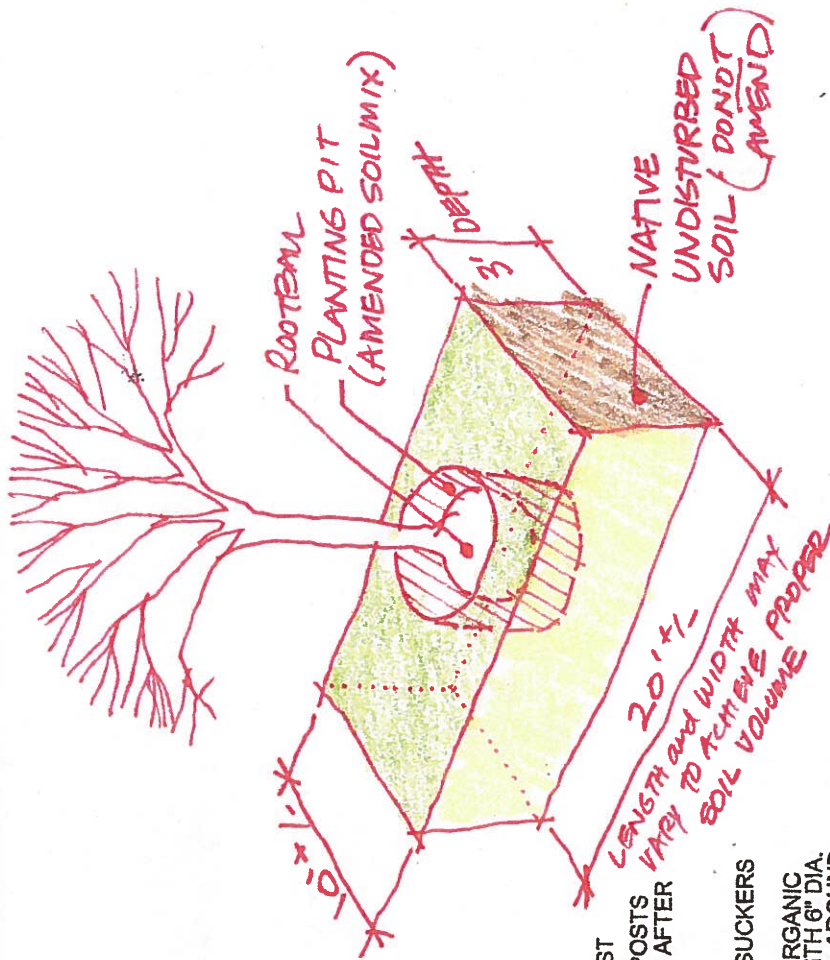 ROOTBALL
PLANTING PIT
(AMENDED SOIL MIX)
3' DEPTH
NATIVE
UNDISTURBED
SOIL (DO NOT
AMEND)
20' +/-
LENGTH and WIDTH MAY
VARY TO ACHIEVE PROPER
SOIL VOLUME
POSTS
AFTER
SUCKERS
6" DIA.